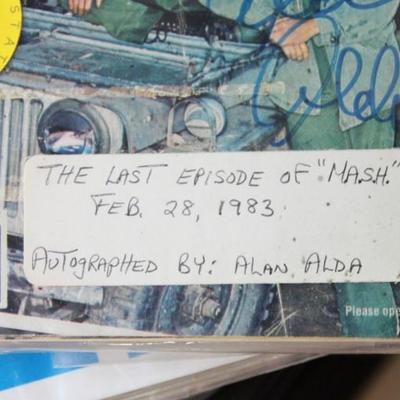 STAT
THE LAST EPISODE OF "M.A.S.H."
FEB. 28, 1983
AUTOGRAPHED BY: ALAN ALDA
Please ope